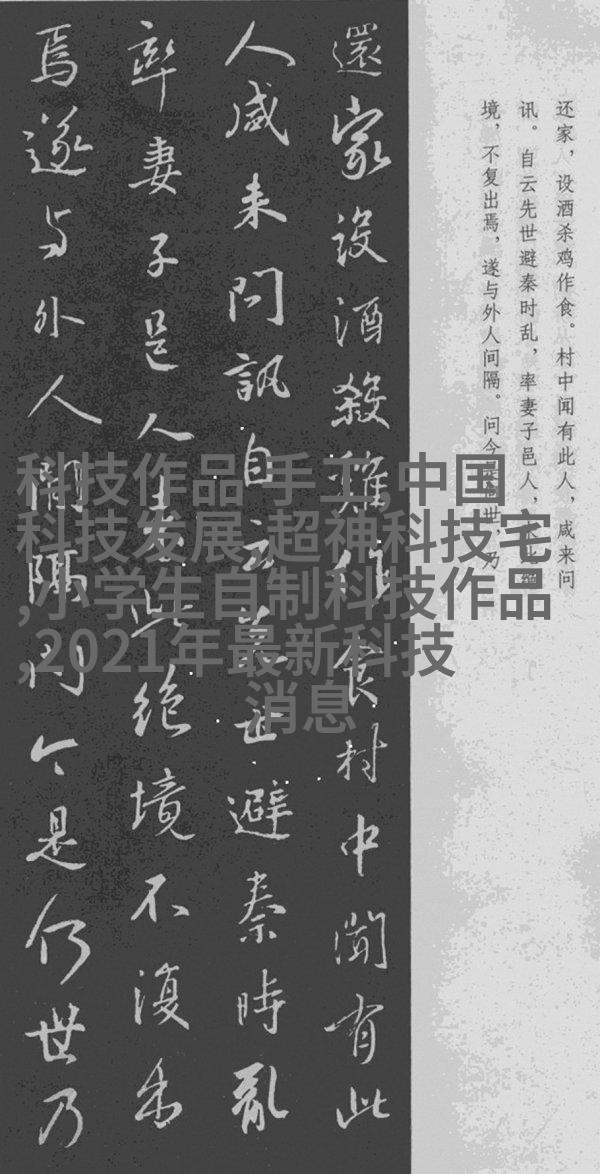 还家，设酒杀鸡作食。村中闻有此人，咸来问
讯。自云先世避秦时乱，率妻子邑人，来此绝
境，不复出焉，遂与外人间隔。问今是何世，乃
還家設酒殺雞作食村中聞有此
人咸来問訊自云先世避秦時亂
率妻子邑人来此绝境不復出
焉遂与外人間隔问今是何世乃
科技作品 手工,中国
科技发展,超神科技宅
,小学生自制科技作品
,2021年最新科技
消息